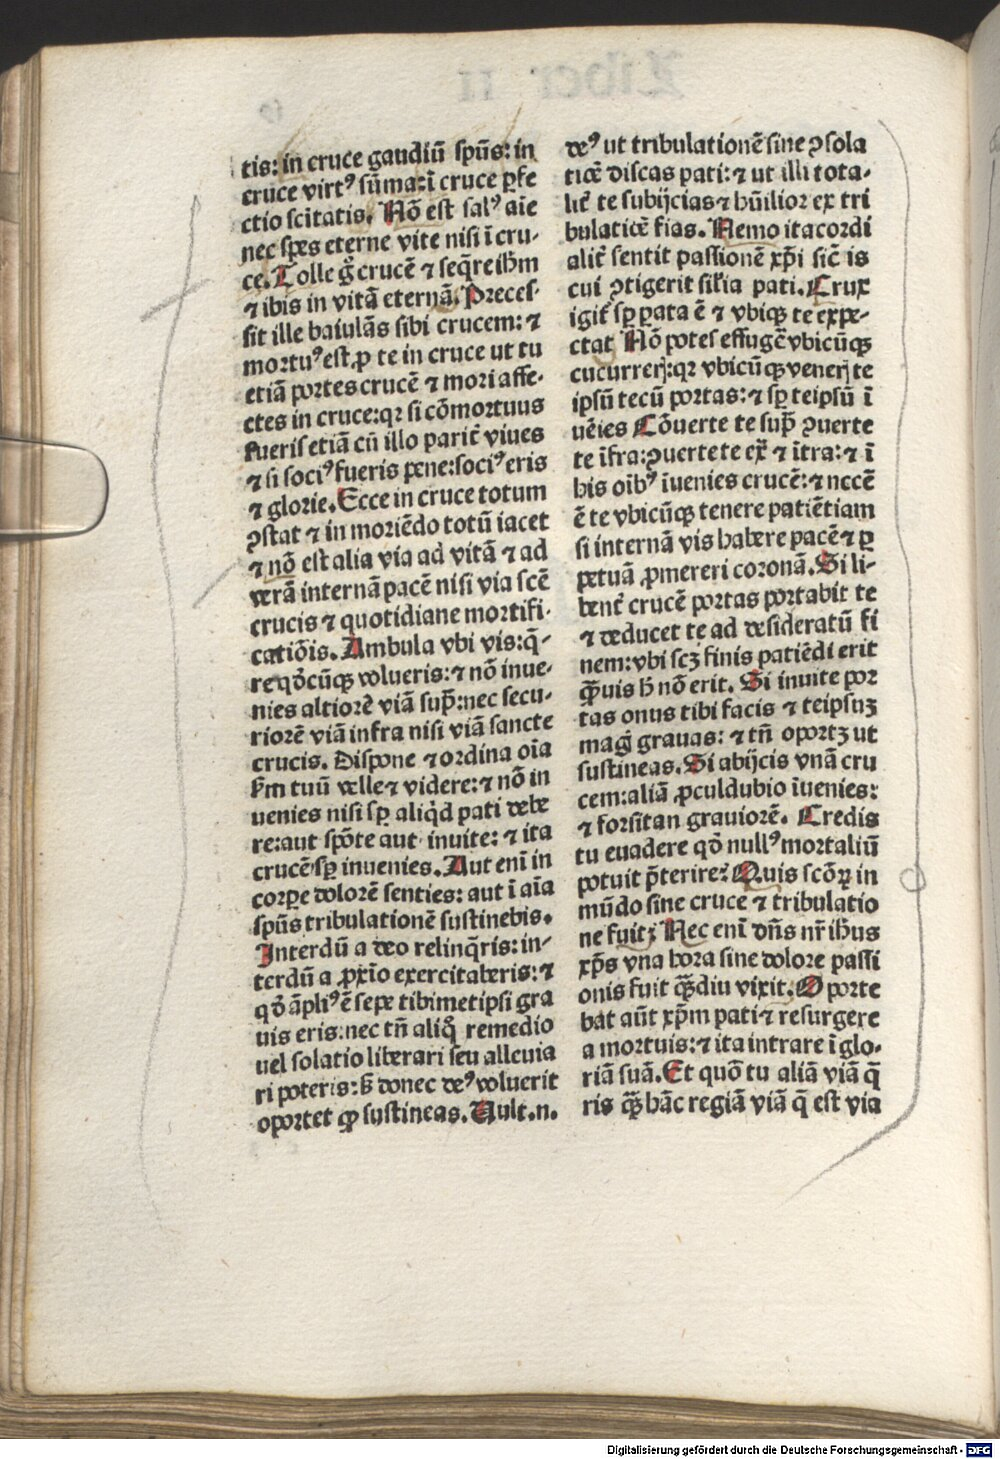 tis: in cruce gaudiū spūs: in
cruce virtꝰ sūma: ī cruce ꝑfe
ctio scītatis. Nō est salꝰ aīe
nec spes eterne vite nisi ī cru-
ce. Tolle gͦ crucē ⁊ seq̄re ihm̄
⁊ ibis in vitā eternā. Preces-
sit ille baiulās sibi crucem: ⁊
mortuꝰ est ꝓ te in cruce ut tu
etiā portes crucē ⁊ mori affe-
ctes in cruce: qꝛ si cōmortuus
fueris etiā cū illo parit̄ viues
⁊ si sociꝰ fueris pene: sociꝰ eris
⁊ glorie. Ecce in cruce totum
ꝯstat ⁊ in moriēdo totū iacet
⁊ nō est alia via ad vitā ⁊ ad
verā internā pacē nisi via scē
crucis ⁊ quotidiane mortifi-
catiōis. Ambula vbi vis: q̄-
re qd̓cūqꝫ volueris: ⁊ nō inue-
nies altiorē viā supͣ: nec secu-
riorē viā infra nisi viā sancte
crucis. Dispone ⁊ ordina oīa
ẜm tuū velle ⁊ videre: ⁊ nō in
uenies nisi sꝑ aliqͥd pati debe
re: aut spōte aut inuite: ⁊ ita
crucē sꝑ inuenies. Aut enī in
corpe dolorē senties: aut ī aīa
spūs tribulationē sustinebis.
Interdū a deo relinq̄ris: in-
terdū a ꝓxīo exercitaberis: ⁊
qd̓ āpliꝰ ē sepe tibimetipsi gra
uis eris: nec tn̄ aliqͦ remedio
uel solatio liberari seu alleuia
ri poteris: ß donec deꝰ voluerit
oportet qꝙ sustineas. Uult .n.
deꝰ ut tribulationē sine ꝯsola
tiōe discas pati: ⁊ ut illi tota-
lit̄ te subijcias ⁊ hūilior ex tri
bulatiōe fias. Nemo ita cordi
alit̄ sentit passionē xp̄i sic̄ is
cui ꝯtigerit sil̓ia pati. Crux
igit̄ sꝑ parata ē ⁊ vbiqꝫ te expe-
ctat Nō potes effugē vbicūqꝫ
cucurreris: qꝛ vbicūqꝫ veneris te
ipsū tecū portas: ⁊ sꝑ teipsū ī
uēies Cōuerte te supͣ ꝯuerte
te īfra: ꝯuerte te ex̄ ⁊ ītra: ⁊ ī
his oībꝰ īuenies crucē: ⁊ necē
ē te vbicūqꝫ tenere patiētiam
si internā vis habere pacē ⁊ ꝑ
petuā ꝓmereri coronā. Si li-
bent̄ crucē portas portabit te
⁊ deducet te ad desideratū fi
nem: vbi scꝫ finis patiēdi erit
qͣꝫuis h̄ nō erit. Si inuite por
tas onus tibi facis ⁊ teipsuꝫ
magͥ grauas: ⁊ tn̄ oportꝫ ut
sustineas. Si abijcis vnā cru
cem: aliā ꝓculdubio īuenies:
⁊ forsitan grauiorē. Credis
tu euadere qd̓ nullꝰ mortaliū
potuit p̄terire? Quis scōꝝ in
mūdo sine cruce ⁊ tribulatio
ne fuit? Nec enī dn̄s nr̄ ihūs
xp̄s vna hora sine dolore passi
onis fuit qͣꝫdiu vixit. Oporte
bat aūt xp̄m pati ⁊ resurgere
a mortuis: ⁊ ita intrare ī glo-
riā suā. Et quō tu aliā viā q̄
ris qͣꝫ hāc regiā viā q̄ est via
Digitalisierung gefördert durch die Deutsche Forschungsgemeinschaft - DFG